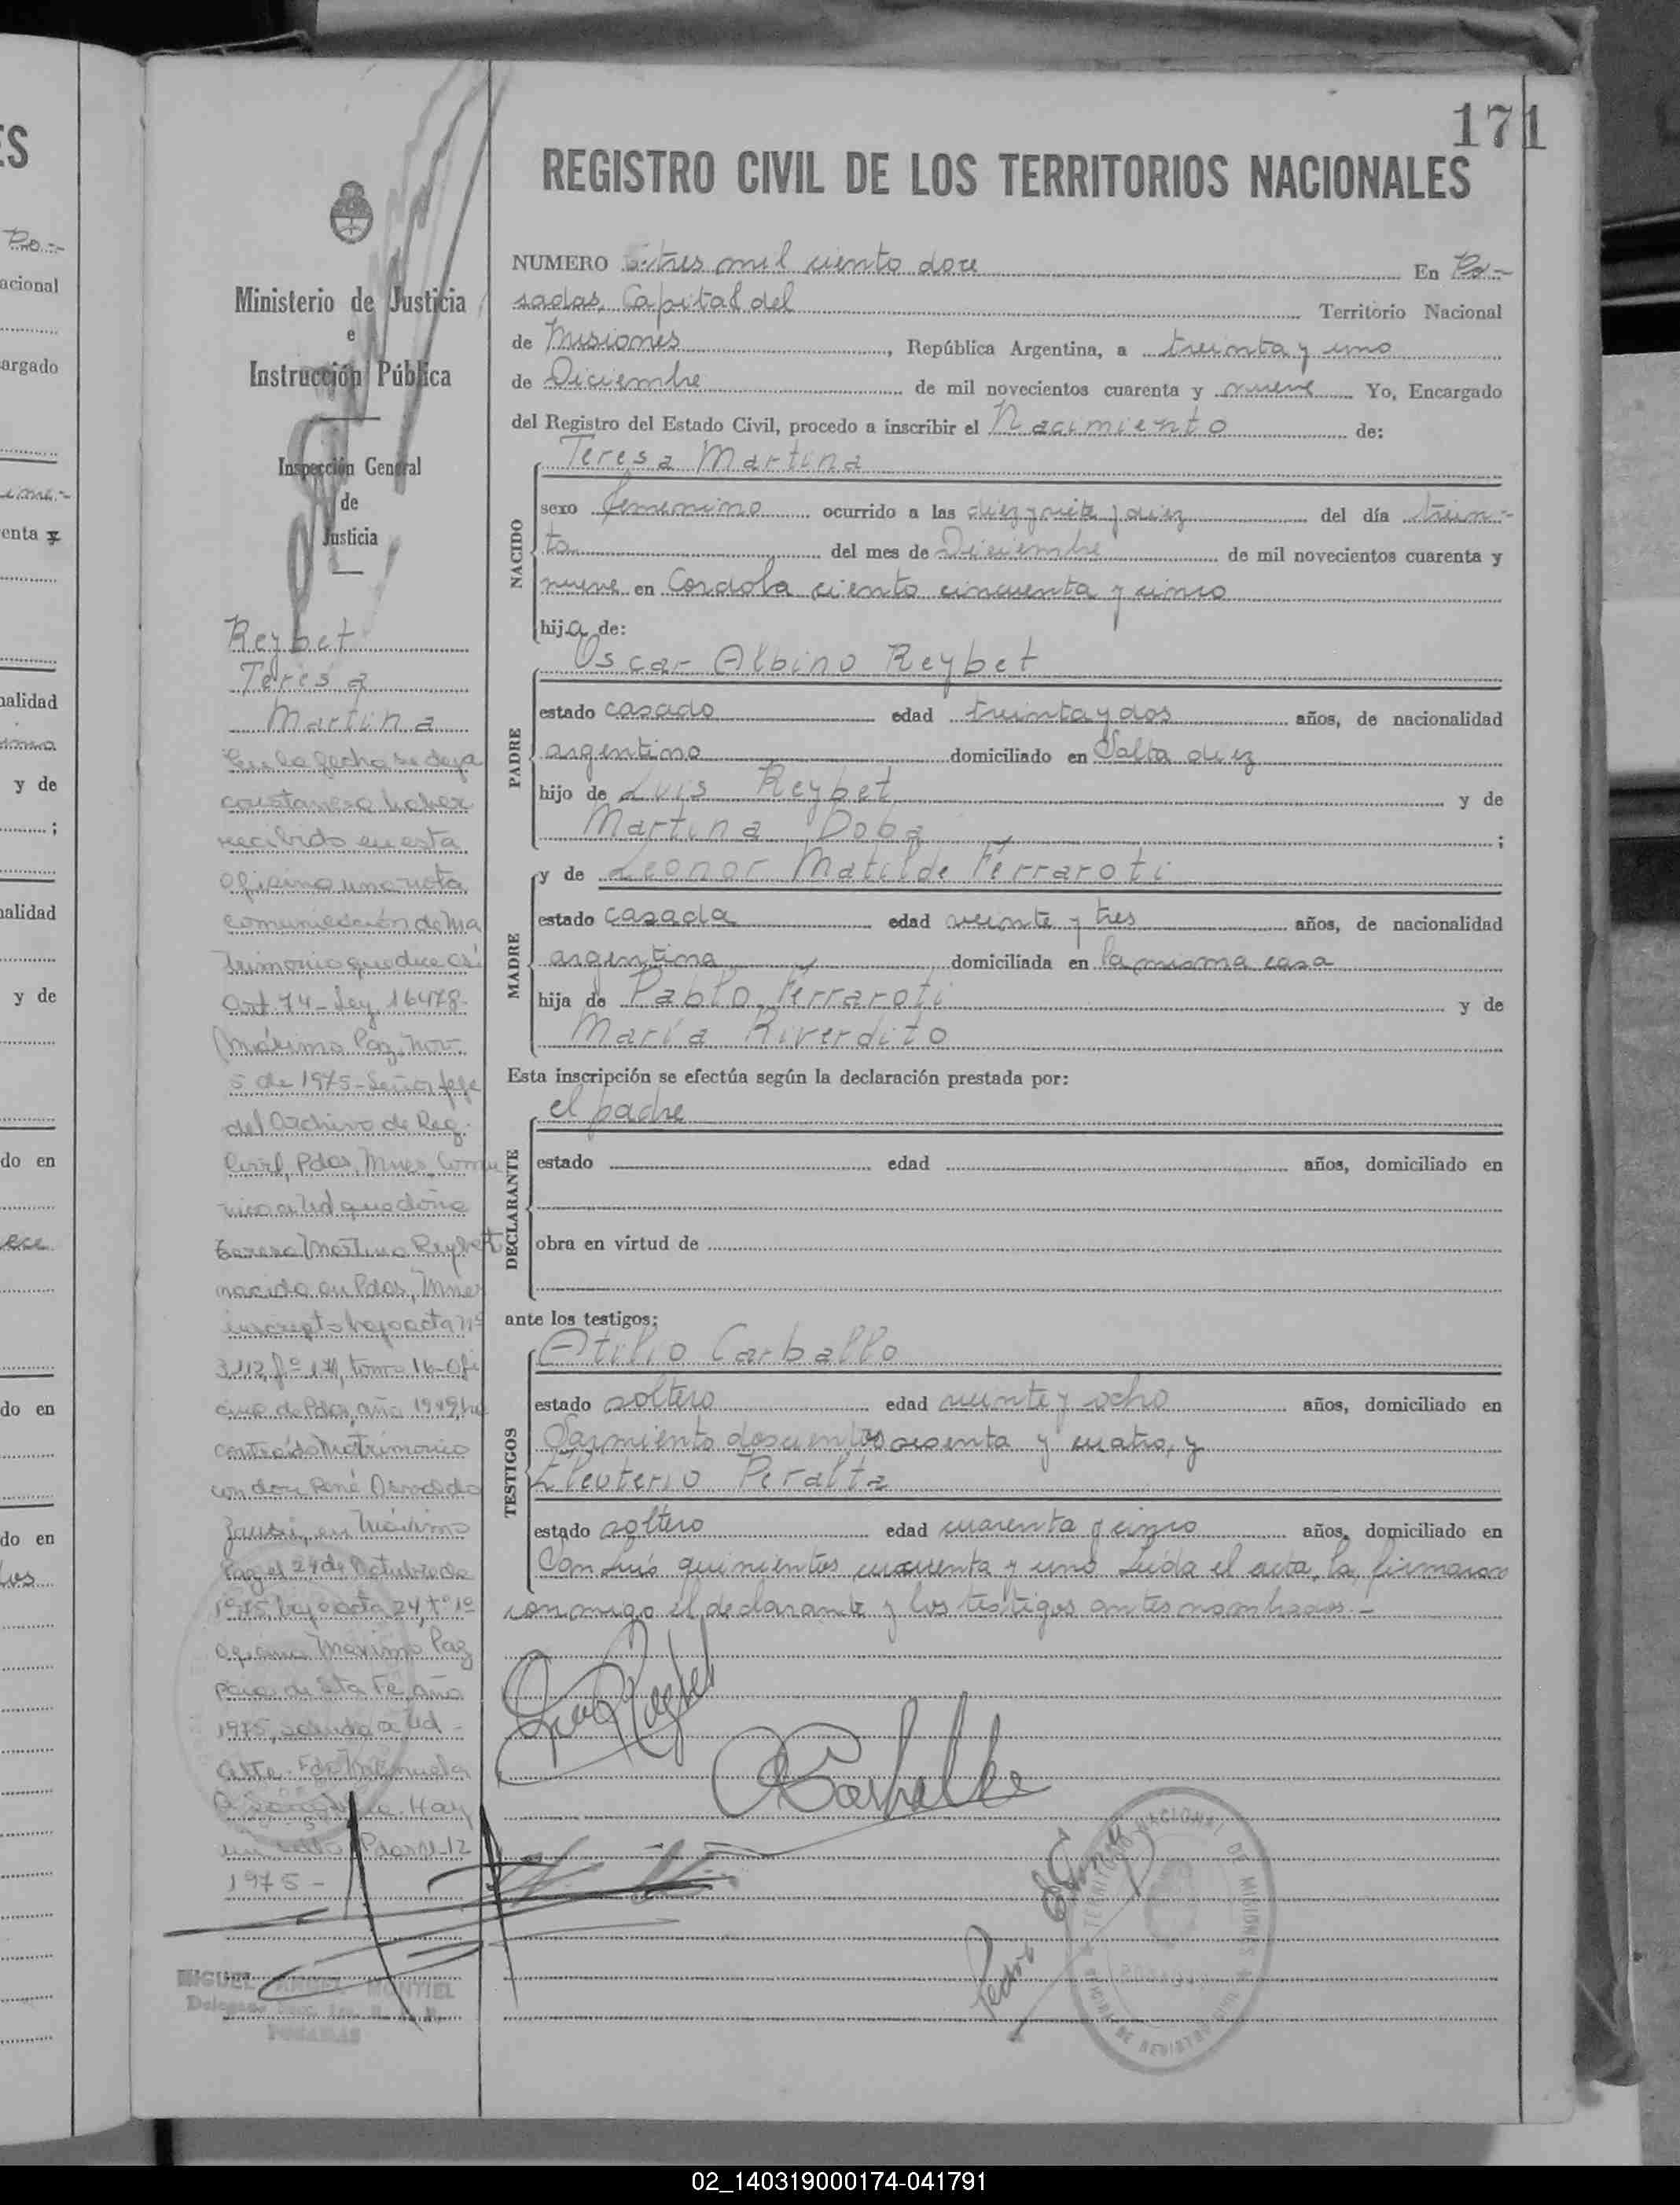 171
REGISTRO CIVIL DE LOS TERRITORIOS NACIONALES
NUMERO tres mil ciento doce En Po-
sadas, Capital del Territorio Nacional
de Misiones, República Argentina, a treinta y uno
de Diciembre de mil novecientos cuarenta y nueve Yo, Encargado
del Registro del Estado Civil, procedo a inscribir el Nacimiento de:
NACIDO
Teresa Martina
sexo femenino ocurrido a las diez y siete y diez del día trein-
ta del mes de Diciembre de mil novecientos cuarenta y
nueve en Cordoba ciento cincuenta y cinco
hija de:
PADRE
Oscar Albino Reybet
estado casado edad treinta y dos años, de nacionalidad
argentino domiciliado en Salta diez
hijo de Luis Reybet y de
Martina Doba ;
MADRE
y de Leonor Matilde Ferraroti
estado casada edad veinte y tres años, de nacionalidad
argentina domiciliada en la misma casa
hija de Pablo Ferraroti y de
María Riverdito
Esta inscripción se efectúa según la declaración prestada por:
DECLARANTE
el padre
estado edad años, domiciliado en
obra en virtud de
ante los testigos:
TESTIGOS
Atilio Carballo
estado soltero edad veinte y ocho años, domiciliado en
Sarmiento doscientos sesenta y cuatro, y
Eleuterio Peralta
estado soltero edad cuarenta y cinco años, domiciliado en
San Luis quinientos cincuenta y uno Leída el acta, la firmaron
conmigo el declarante y los testigos antes nombrados.-
Ministerio de Justicia
e
Instrucción Pública
Inspección General
de
Justicia
Reybet
Teresa
Martina
En la fecha se deja
constancia haber
recibido en esta
Oficina una nota
comunicación de Ma
trimonio que dice así
Art. 74 - Ley 16478-
Máximo Paz, Nov.
5 de 1975 - Señor Jefe
del Archivo de Reg.
Civil, Pdas, Mnes, Comu
nico a Ud que doña
Teresa Martina Reybet
nacida en Pdas, Mnes
inscripta bajo acta nº
3112, fº 171, tomo 16- Ofi
cina de Pdas, año 1949, ha
contraído Matrimonio
con don René Osvaldo
en Máximo
Paz el 24 de Octubre de
1975 bajo acta 24, tº 1º
Oficina Máximo Paz
pcia de Sta Fe, año
1975, saluda a Ud -
Atte. Fdo
Hay
un sello
1975 -
MIGUEL ANGEL MONTIEL
POSADAS
TERRITORIO NACIONAL DE MISIONES
02_140319000174-041791